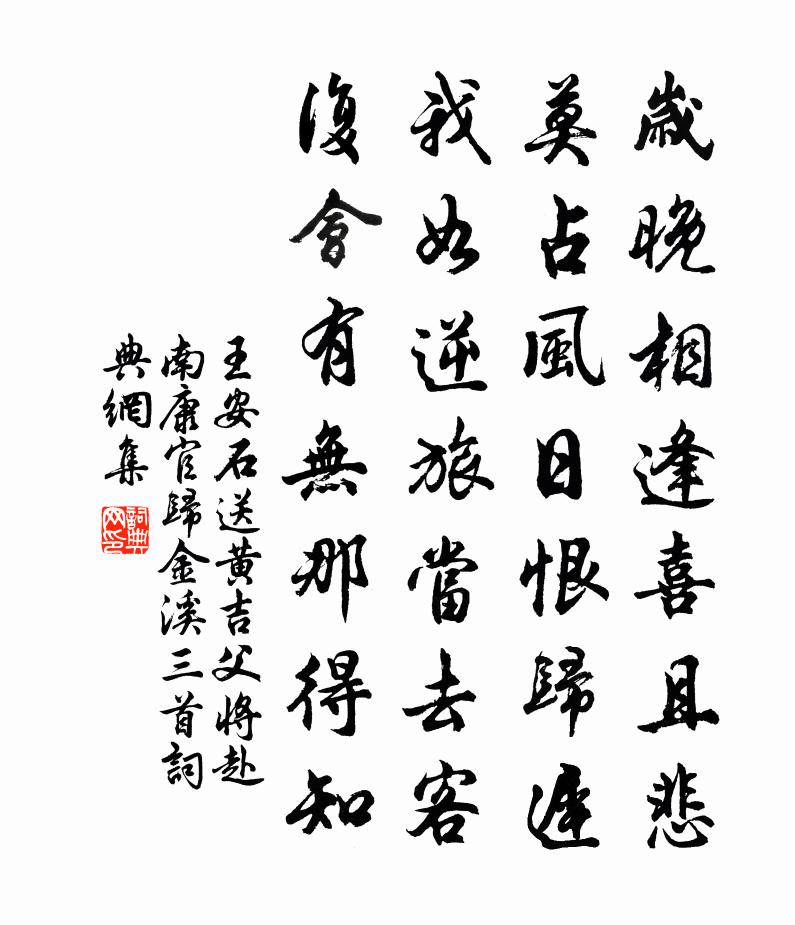 歲晚相逢喜且悲
莫占風日恨歸遲
我如逆旅當去客
復會有無那得知
王安石送黃吉父將赴
南康官歸金溪三首詞
典網集
詞典网印